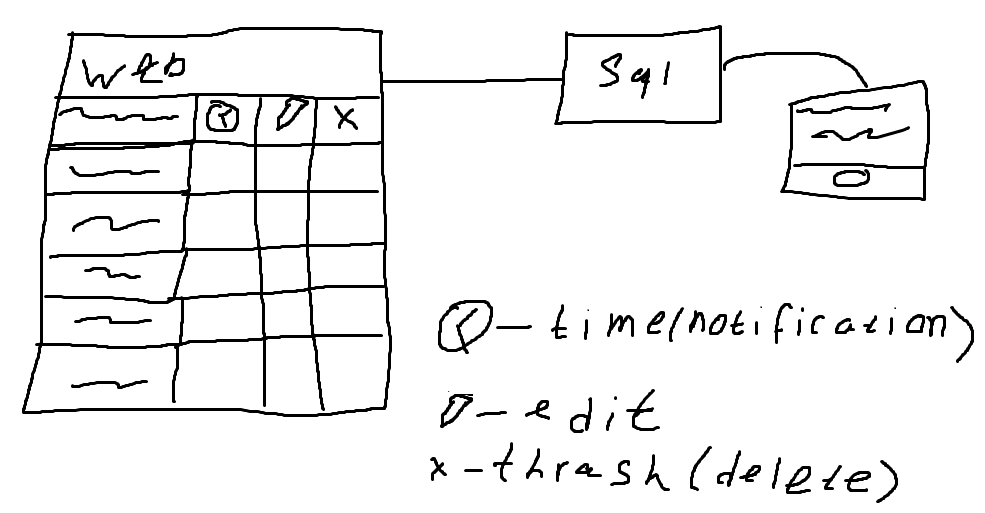 Web
Sql
x
- time(notification)
- edit
x - thrash (delete)